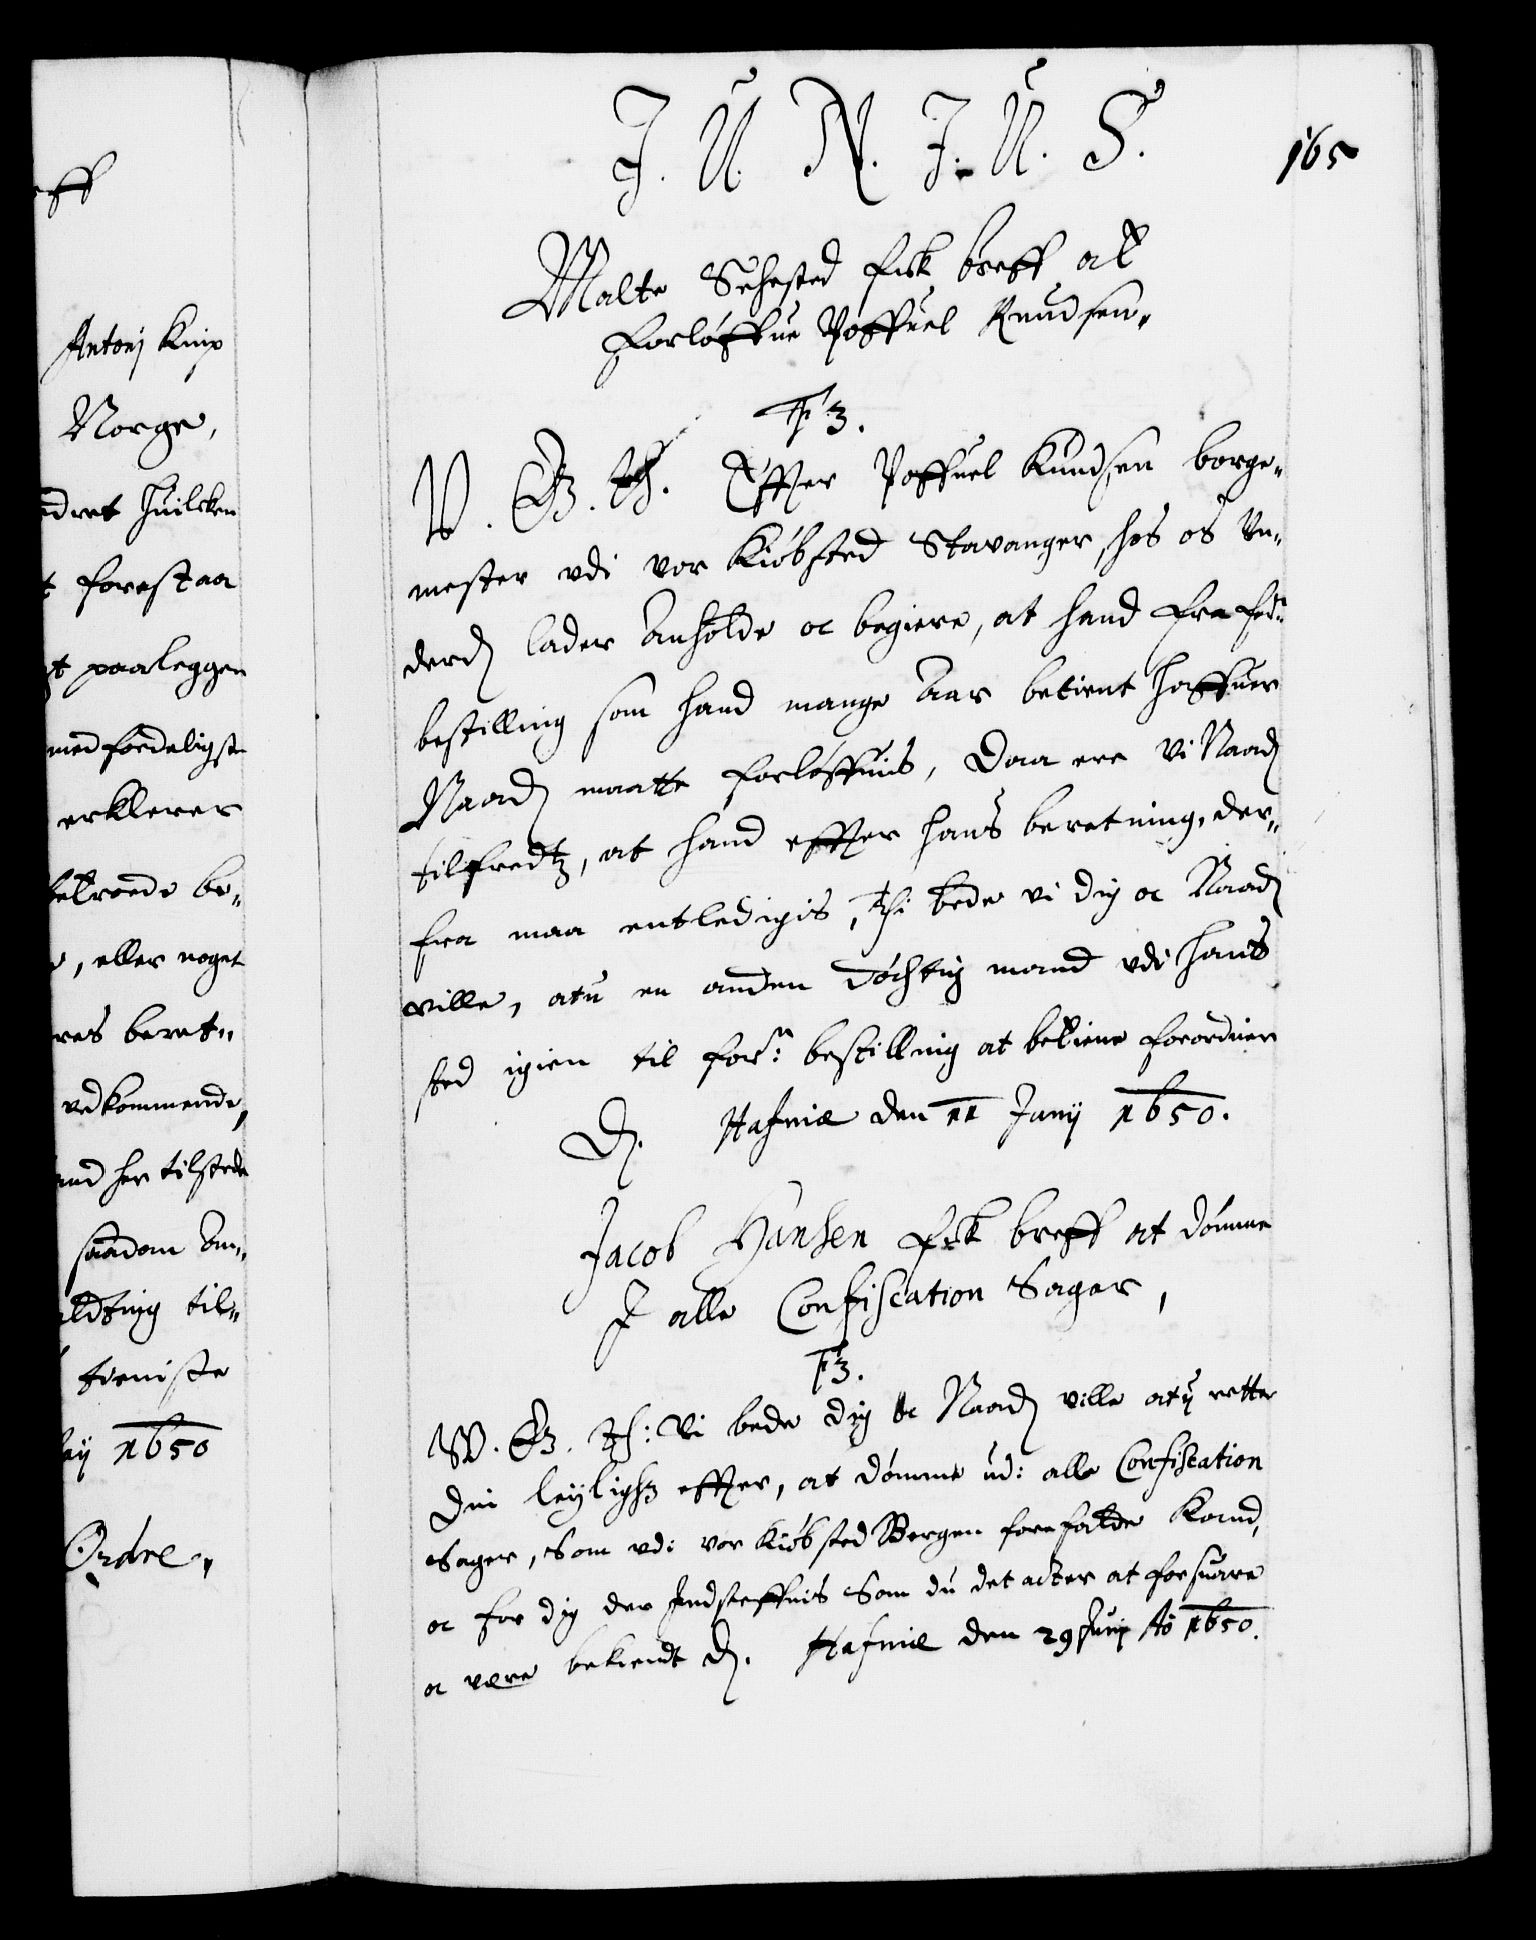 eff
Antonj Knip
Norge,
dret huilcken
t forestaa
t paaleggen
med forderligste
erklerer
betroede be„
, eller noget
res beret„
vedkommende,
and her tilstede
saadan An„
aldting til„
tieniste
aij 1650
Ordre.
J. U. N. J. U. S.
165
Malte Sehested fick breff at
forløffue Poffuel Knudsen„
F3.
V. G. Th. Effter Poffuel Knudsen borge„
mester vdi vor Kiøbsted Stavanger, hos os Vn„
derd: lader Anholde oc begiere, at hand fra for:ne
bestilling som hand mange Aar betient haffuer
Naad: maatte forløffuis, Daa ere Vi Naad:
tilfredtz, at hand effter hans beretning, der„
fra maa entledigis, Thi bede vi dig oc Naad:
ville, atu en anden døchtig mand vdi hans
sted igien til for:n bestilling at betiene forordner
D. Hafniæ den 11 Junij 1650.
Jacob Hansen fick breff at dømme
J alle Confiscation Sager,
F3.
W. G. Th: Vi bede dig oc Naad: ville atu rette
Din leylighz effter, at dømme ud: alle Confiscation
Sager, Som vdi vor Kiøbsted Bergen forefalde Kand,
oc for dig der Jndsteffnis Som du det acter at forsuare
oc være bekiendt D. Hafniæ den 29 Junij Ao 1650.